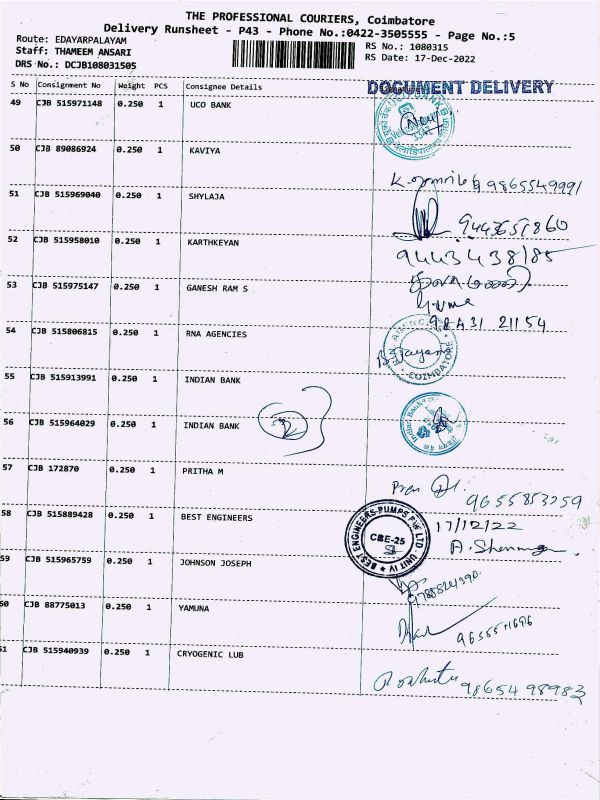 THE PROFESSIONAL COURIERS, Coimbatore
Delivery Runsheet - P43 - Phone No.:0422-3505555 - Page No.:5
Route: EDAYARPALAYAM
Staff: THAMEEM ANSARI
DRS No.: DCJB108031505
RS No.: 1080315
RS Date: 17-Dec-2022
S No Consignment No Weight PCS Consignee Details
DOCUMENT DELIVERY
49 CJB 515971148 0.250 1 UCO BANK
50 CJB 89086924 0.250 1 KAVIYA
9865549991
51 CJB 515969040 0.250 1 SHYLAJA
9443651860
52 CJB 515958010 0.250 1 KARTHKEYAN
9443438185
53 CJB 515975147 0.250 1 GANESH RAM S
98431 21154
54 CJB 515806815 0.250 1 RNA AGENCIES
COIMBATORE
55 CJB 515913991 0.250 1 INDIAN BANK
56 CJB 515964029 0.250 1 INDIAN BANK
Indian Bank
57 CJB 172870 0.250 1 PRITHA M
9655853259
58 CJB 515889428 0.250 1 BEST ENGINEERS
BEST ENGINEERS PUMPS PVT LTD. UNIT IV
CBE-25
17/12/22
59 CJB 515965759 0.250 1 JOHNSON JOSEPH
60 CJB 88775013 0.250 1 YAMUNA
61 CJB 515940939 0.250 1 CRYOGENIC LUB
9865498983